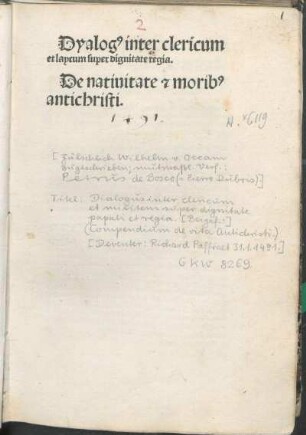 1
2
Dyalogꝰ inter clericum
et laycum super dignitate regia.
De natiuitate ⁊ moribꝰ
antichristi.
1491.
H. *6119
[Fälschlich Wilhelm v. Occam
zugeschrieben; mutmaßl. Verf.:
Petrus de Bosco (= Pierre Dubois)]
Titel: Dialogus inter clericum
et militem super dignitate
papali et regia. [Beigef.:]
(Compendium de vita Antichristi.)
[Deventer: Richard Paffraet 31.1.1491.]
GKW 8269